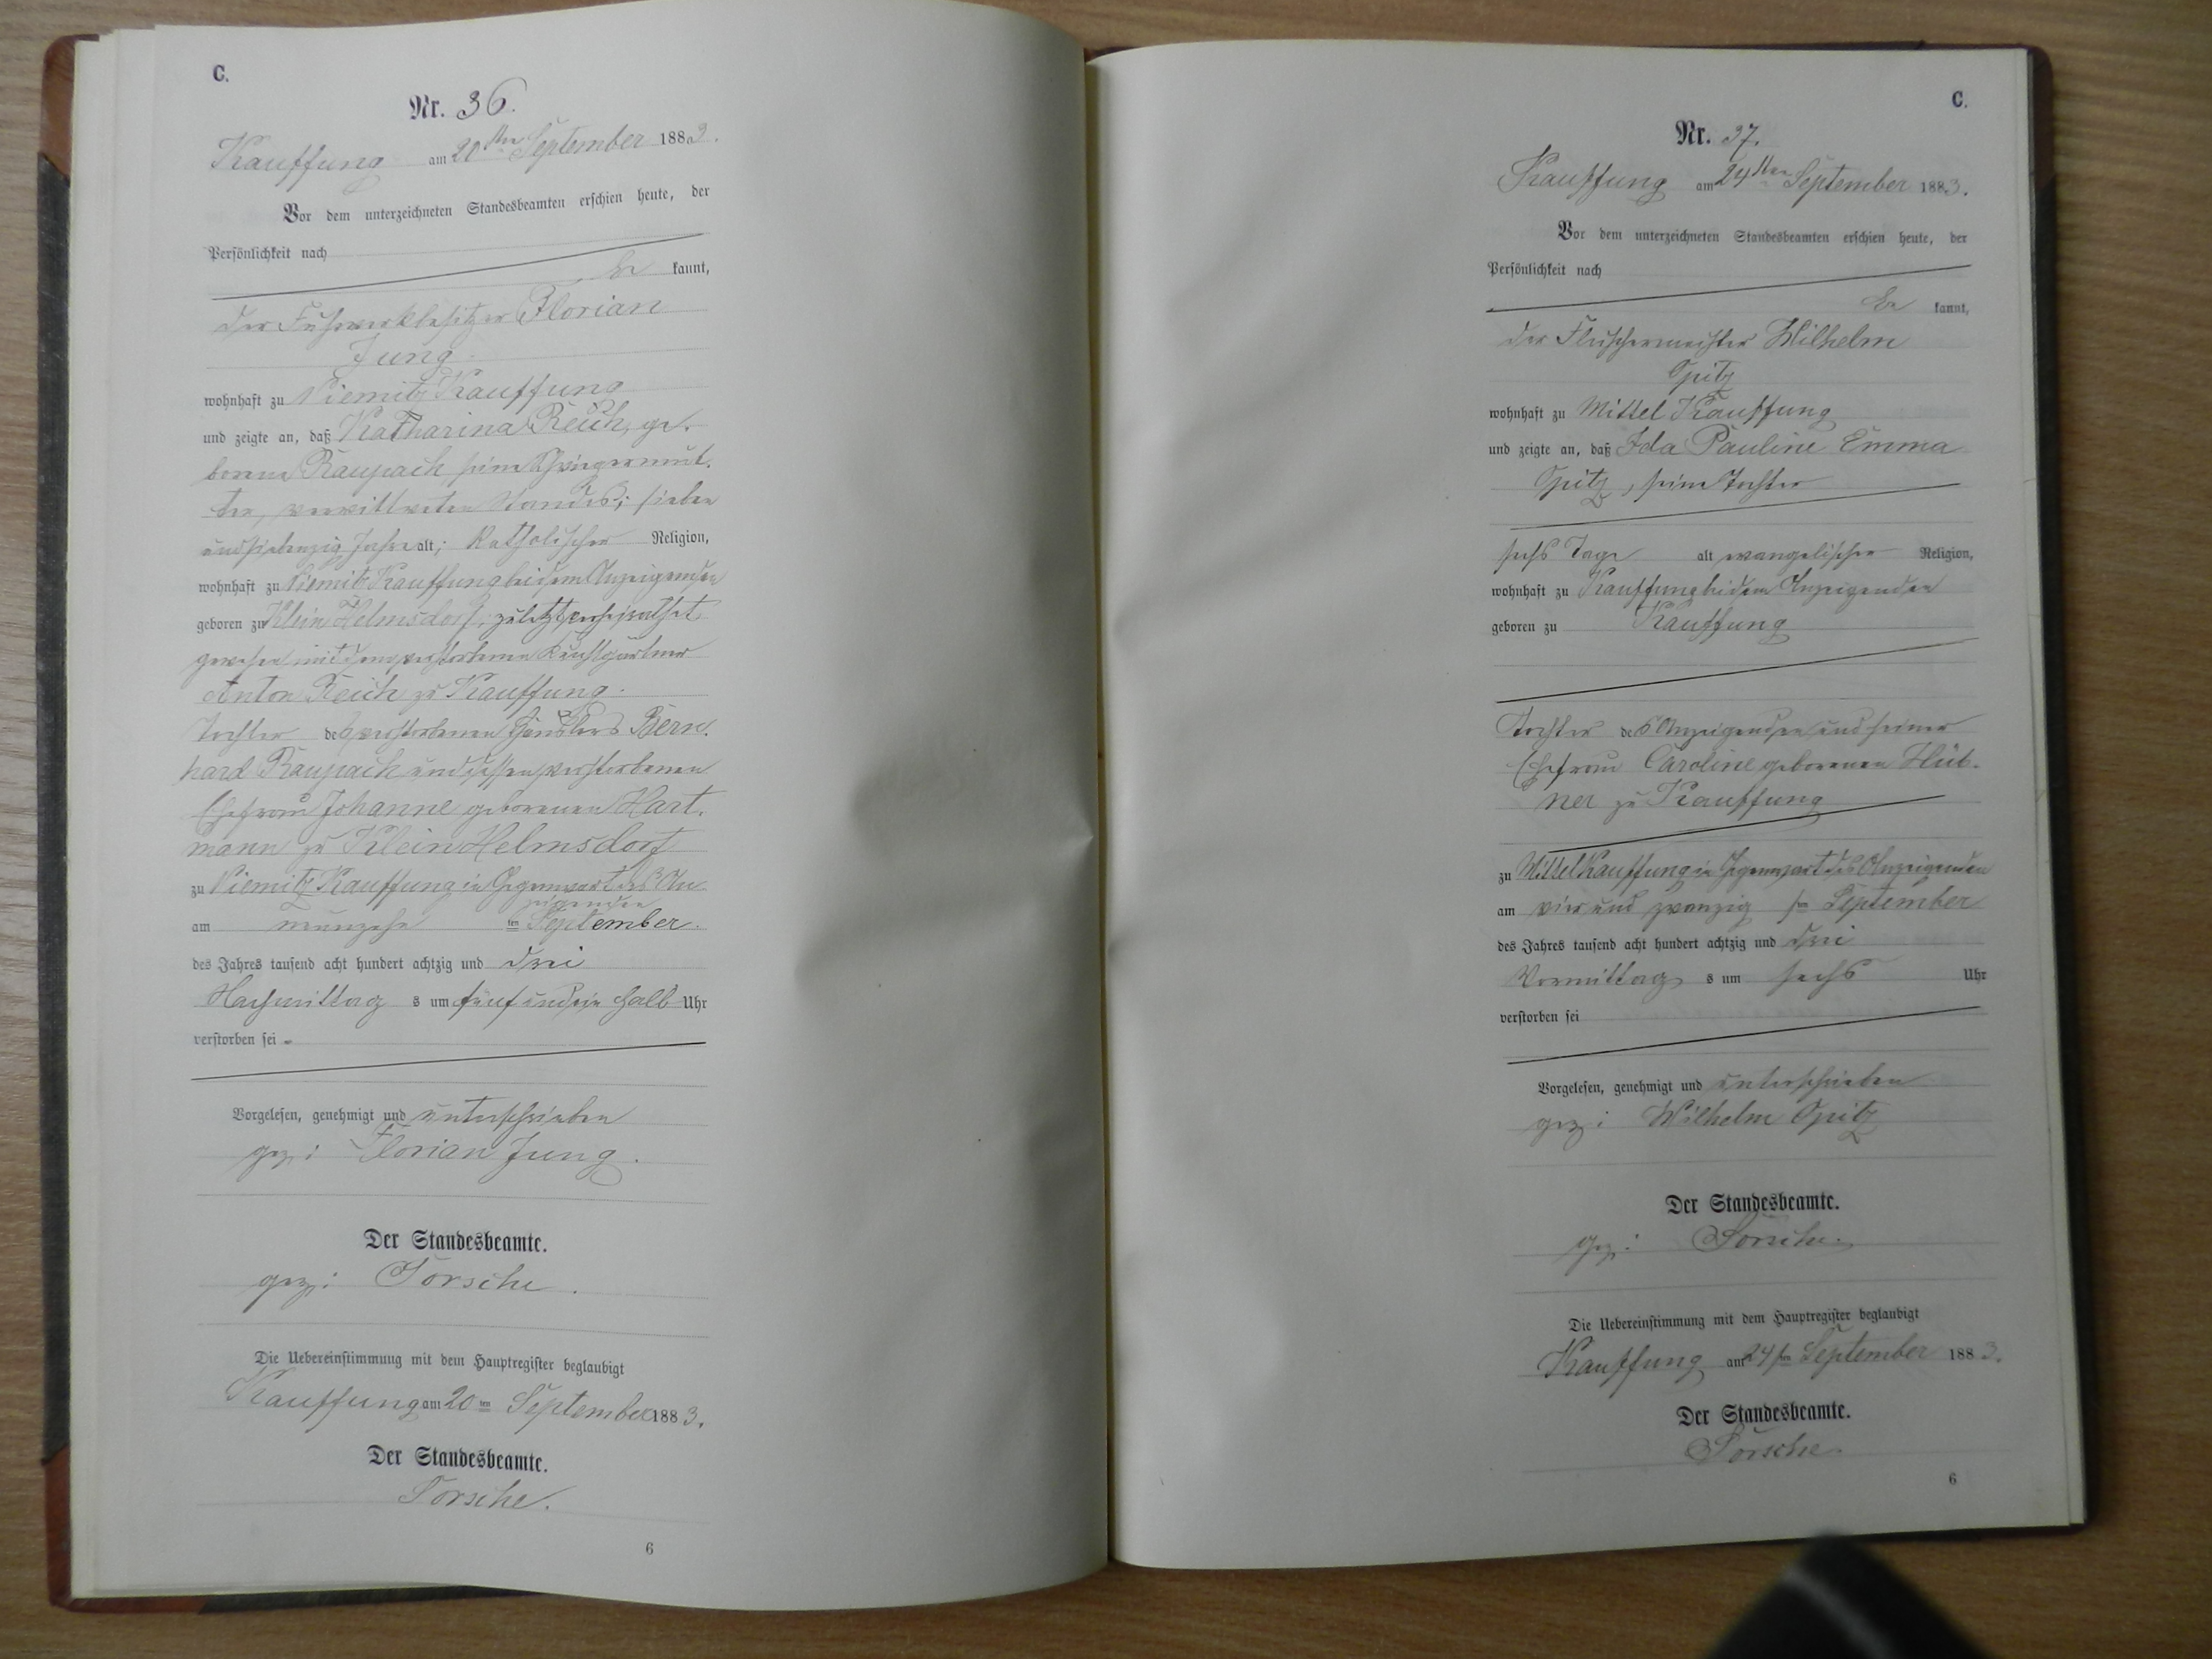 C.
Nr. 36.
Kauffung am 20ten September 1883.
Vor dem unterzeichneten Standesbeamten erschien heute, der
Persönlichkeit nach
be kannt,
der Fuhrwerkbesitzer Florian
Jung
wohnhaft zu Niemitz Kauffung
und zeigte an, daß Katharina Reich, ge-
borene Raupach seine Schwiegermut-
ter, verwittweten Standes; sieben
und siebenzig Jahre alt; katholischer Religion,
wohnhaft zu Niemitz Kauffung bei dem Anzeigenden
geboren zu Klein Helmsdorf; zuletzt verheirathet
gewesen mit dem verstorbenen
Anton Reich zu Kauffung.
Tochter des verstorbenen Häuslers Bern-
hard Raupach und dessen verstorbenen
Ehefrau Johanne geborenen Hart-
mann zu Klein Helmsdorf
zu Niemitz Kauffung in Gegenwart des An-
zeigenden
am neunzehn ten September
des Jahres tausend acht hundert achtzig und drei
Nachmittag s um fünf und ein halb Uhr
verstorben sei
Vorgelesen, genehmigt und unterschrieben
gez: Florian Jung.
Der Standesbeamte.
gez: Torsche.
Die Uebereinstimmung mit dem Hauptregister beglaubigt
Kauffung am 20 ten September 1883.
Der Standesbeamte.
Torsche.
6
C.
Nr. 37.
Kauffung am 24ten September 1883.
Vor dem unterzeichneten Standesbeamten erschien heute, der
Persönlichkeit nach
be kannt,
der Fleischermeister Wilhelm
Opitz
wohnhaft zu Mittel Kauffung
und zeigte an, daß Ida Pauline Emma
Opitz, seine Tochter
sechs Tage alt evangelischer Religion,
wohnhaft zu Kauffung bei dem Anzeigenden
geboren zu Kauffung
Tochter des Anzeigenden und seiner
Ehefrau Caroline geborenen Hüb-
ner zu Kauffung
zu Mittel Kauffung in Gegenwart des Anzeigenden
am vier und zwanzig sten September
des Jahres tausend acht hundert achtzig und drei
Vormittag s um sechs Uhr
verstorben sei
Vorgelesen, genehmigt und unterschrieben
gez: Wilhelm Opitz
Der Standesbeamte.
gez: Torsche.
Die Uebereinstimmung mit dem Hauptregister beglaubigt
Kauffung am 24 sten September 1883.
Der Standesbeamte.
Torsche.
6